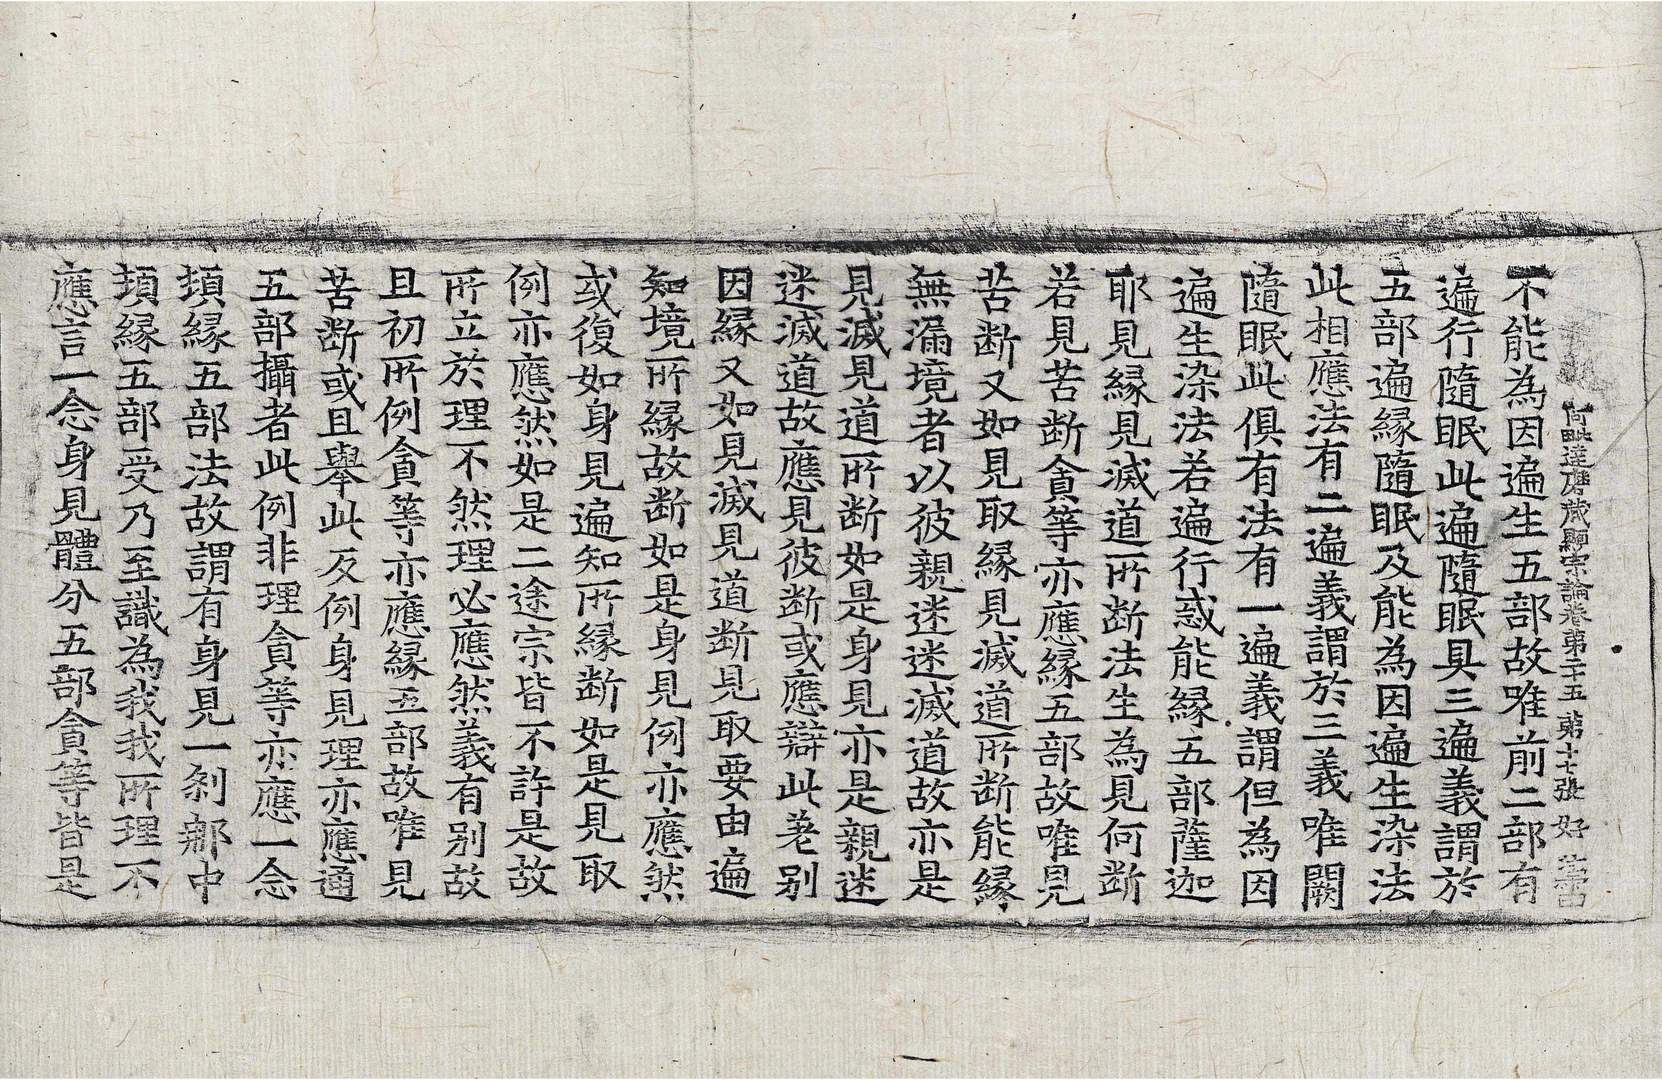 阿毗達磨藏顯宗論卷第二十五 第十七張 好
不能為因遍生五部故唯前二部有
遍行隨眠此遍隨眠具三遍義謂於
五部遍縁隨眠及能為因遍生染法
此相應法有二遍義謂於三義唯闕
隨眠此俱有法有一遍義謂但為因
遍生染法若遍行惑能縁五部薩迦
耶見縁見滅道所斷法生為見何斷
若見苦斷貪等亦應縁五部故唯見
苦斷又如見取縁見滅道所斷能縁
無漏境者以彼親迷迷滅道故亦是
見滅見道所斷如是身見亦是親迷
迷滅道故應見彼斷或應辯此差別
因縁又如見滅見道斷見取要由遍
知境所縁故斷如是身見例亦應然
或復如身見遍知所縁斷如是見取
例亦應然如是二途宗皆不許是故
所立於理不然理必應然義有別故
且初所例貪等亦應縁五部故唯見
苦斷或且舉此反例身見理亦應通
五部攝者此例非理貪等亦應一念
頓縁五部法故謂有身見一剎那中
頓縁五部受乃至識為我我所理不
應言一念身見體分五部貪等皆是